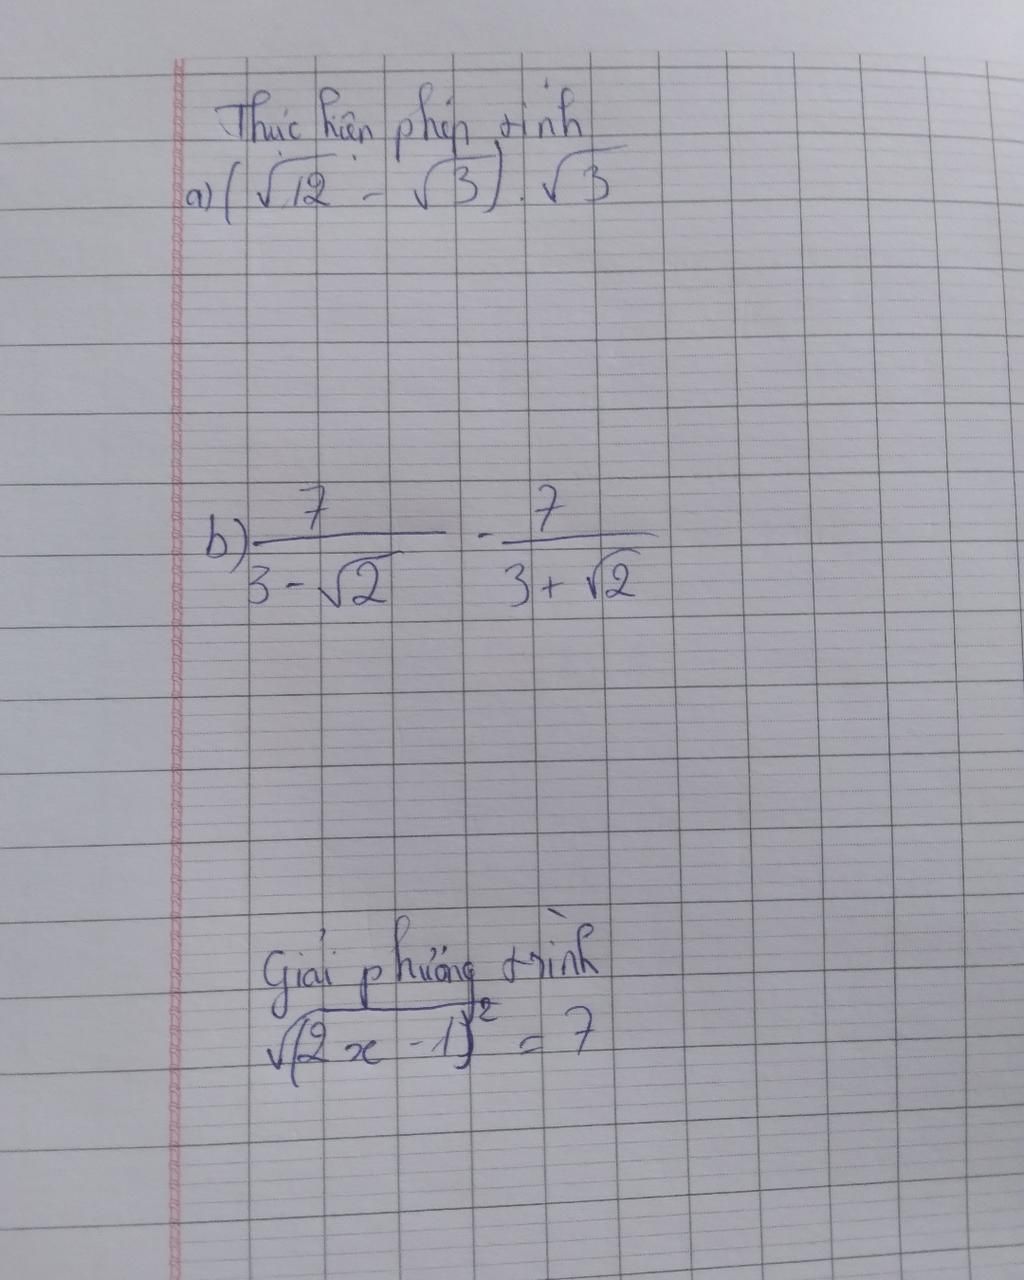 Thực hiện phép tính
a) (√12 - √3) . √3
b) 7/(3 - √2) - 7/(3 + √2)
Giải phương trình
√(2x - 1)² = 7